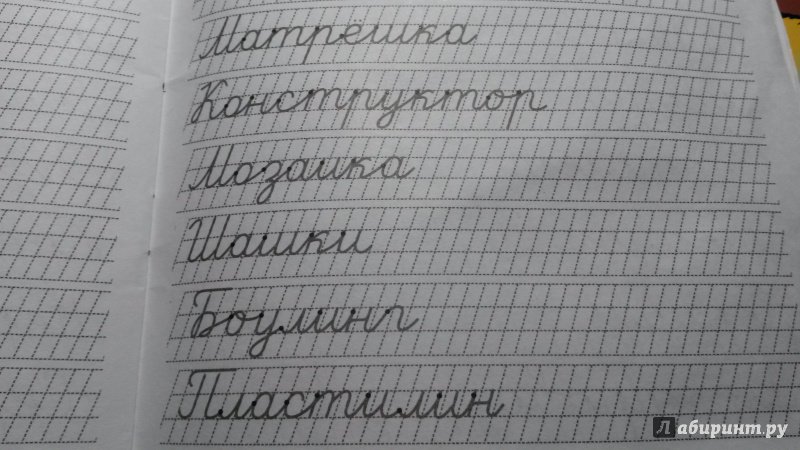 Матрёшка
Конструктор
Мозаика
Шашки
Боулинг
Пластилин
Лабиринт.ру